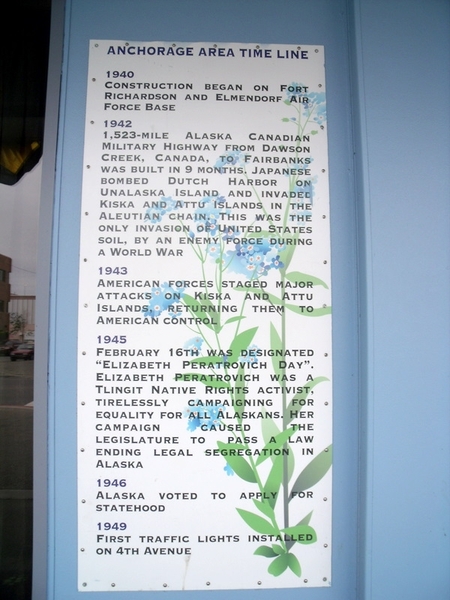 ANCHORAGE AREA TIME LINE
1940
CONSTRUCTION BEGAN ON FORT
RICHARDSON AND ELMENDORF AIR
FORCE BASE
1942
1,523-MILE ALASKA CANADIAN
MILITARY HIGHWAY FROM DAWSON
CREEK, CANADA, TO FAIRBANKS
WAS BUILT IN 9 MONTHS. JAPANESE
BOMBED DUTCH HARBOR ON
UNALASKA ISLAND AND INVADED
KISKA AND ATTU ISLANDS IN THE
ALEUTIAN CHAIN. THIS WAS THE
ONLY INVASION OF UNITED STATES
SOIL, BY AN ENEMY FORCE DURING
A WORLD WAR
1943
AMERICAN FORCES STAGED MAJOR
ATTACKS ON KISKA AND ATTU
ISLANDS, RETURNING THEM TO
AMERICAN CONTROL
1945
FEBRUARY 16TH WAS DESIGNATED
"ELIZABETH PERATROVICH DAY".
ELIZABETH PERATROVICH WAS A
TLINGIT NATIVE RIGHTS ACTIVIST,
TIRELESSLY CAMPAIGNING FOR
EQUALITY FOR ALL ALASKANS. HER
CAMPAIGN CAUSED THE
LEGISLATURE TO PASS A LAW
ENDING LEGAL SEGREGATION IN
ALASKA
1946
ALASKA VOTED TO APPLY FOR
STATEHOOD
1949
FIRST TRAFFIC LIGHTS INSTALLED
ON 4TH AVENUE